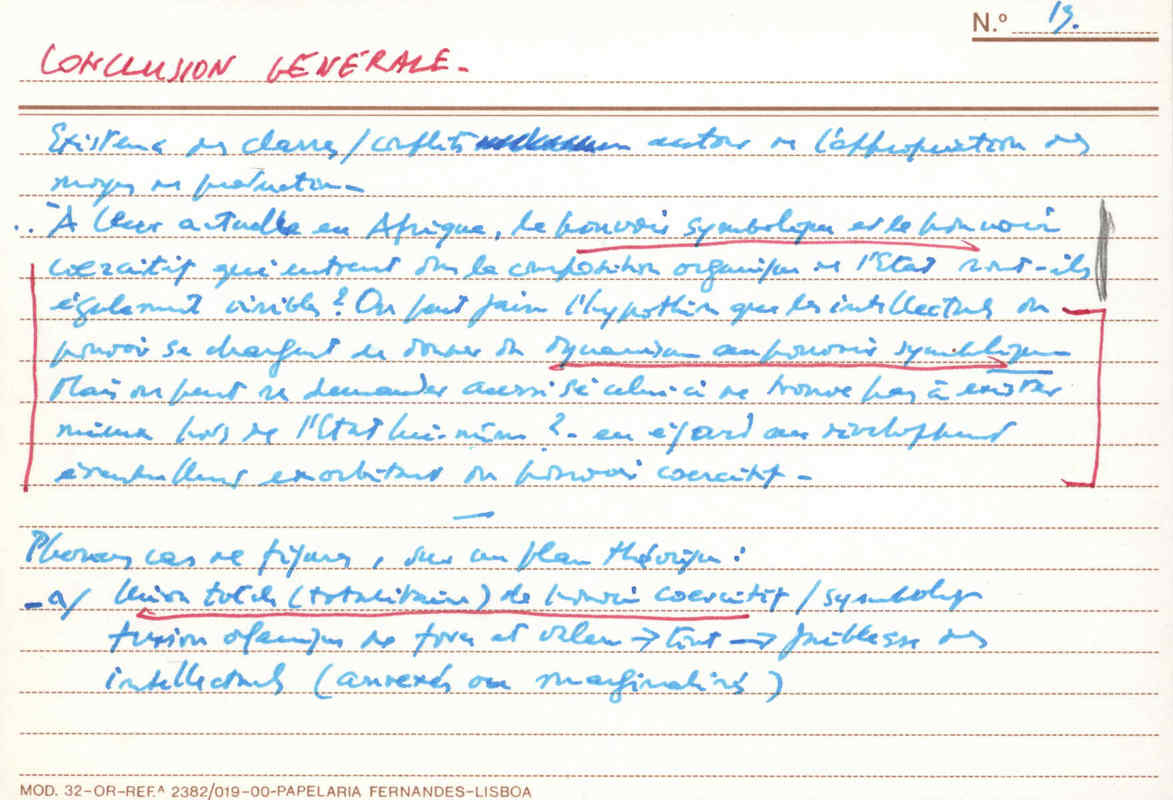 N.º 13.
CONCLUSION GÉNÉRALE -
Existence des classes / conflits autour de l'appropriation des
moyens de production -
.. À l'heure actuelle en Afrique, le pouvoir symbolique et le pouvoir
coercitif qui entrent dans la composition organique de l'État sont-ils
également visibles ? On peut faire l'hypothèse que les intellectuels au
pouvoir se chargent de donner du dynamisme au pouvoir symbolique
Mais on peut se demander aussi si celui-ci ne trouve pas à exister
mieux hors de l'État lui-même ? - en égard au développement
éventuellement exorbitant du pouvoir coercitif -
Plusieurs cas de figures, sur un plan théorique :
- a/ Union totale (totalitaire) de pouvoir coercitif / symbolique
fusion organique de force et valeur → État → faiblesse des
intellectuels (annexés ou marginalisés)
MOD. 32-OR-REF.ª 2382/019-00-PAPELARIA FERNANDES-LISBOA